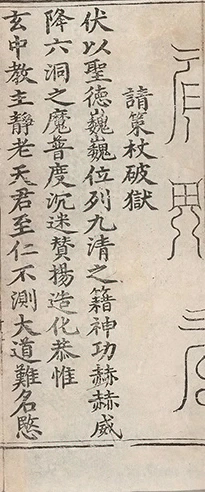 請策杖破獄
伏以聖德巍巍位列九清之籍神功赫赫威
降六洞之魔普度沉迷贊揚造化恭惟
玄中教主靜老天君至仁不測大道難名愍